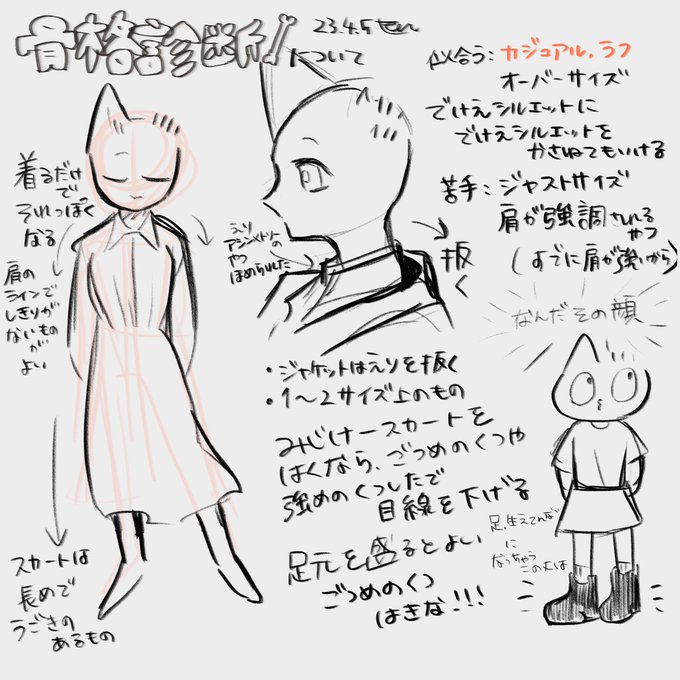 骨格診断!
について
23.4.5
似合う:カジュアル、ラフ
オーバーサイズ
でけえシルエットに
でけえシルエットを
かさねてもいける
苦手:ジャストサイズ
肩が強調されるやつ
(すでに肩が強いから)
着るだけ
で
それっぽく
なる
肩の
ラインで
しきりが
ないもの
が
よい
えり
アシンメトリーの
やつ
ほめられた
抜く
・ジャケットはえりを抜く
・1〜2サイズ上のもの
みじけースカートを
はくなら、ごつめのくつや
強めのくつしたで
目線を下げる
足元を盛るとよい
ごつめのくつ
はきな!!!
スカートは
長めで
うごきの
あるもの
なんだその顔
足、生えてんな
に
なっちゃう
この丈は